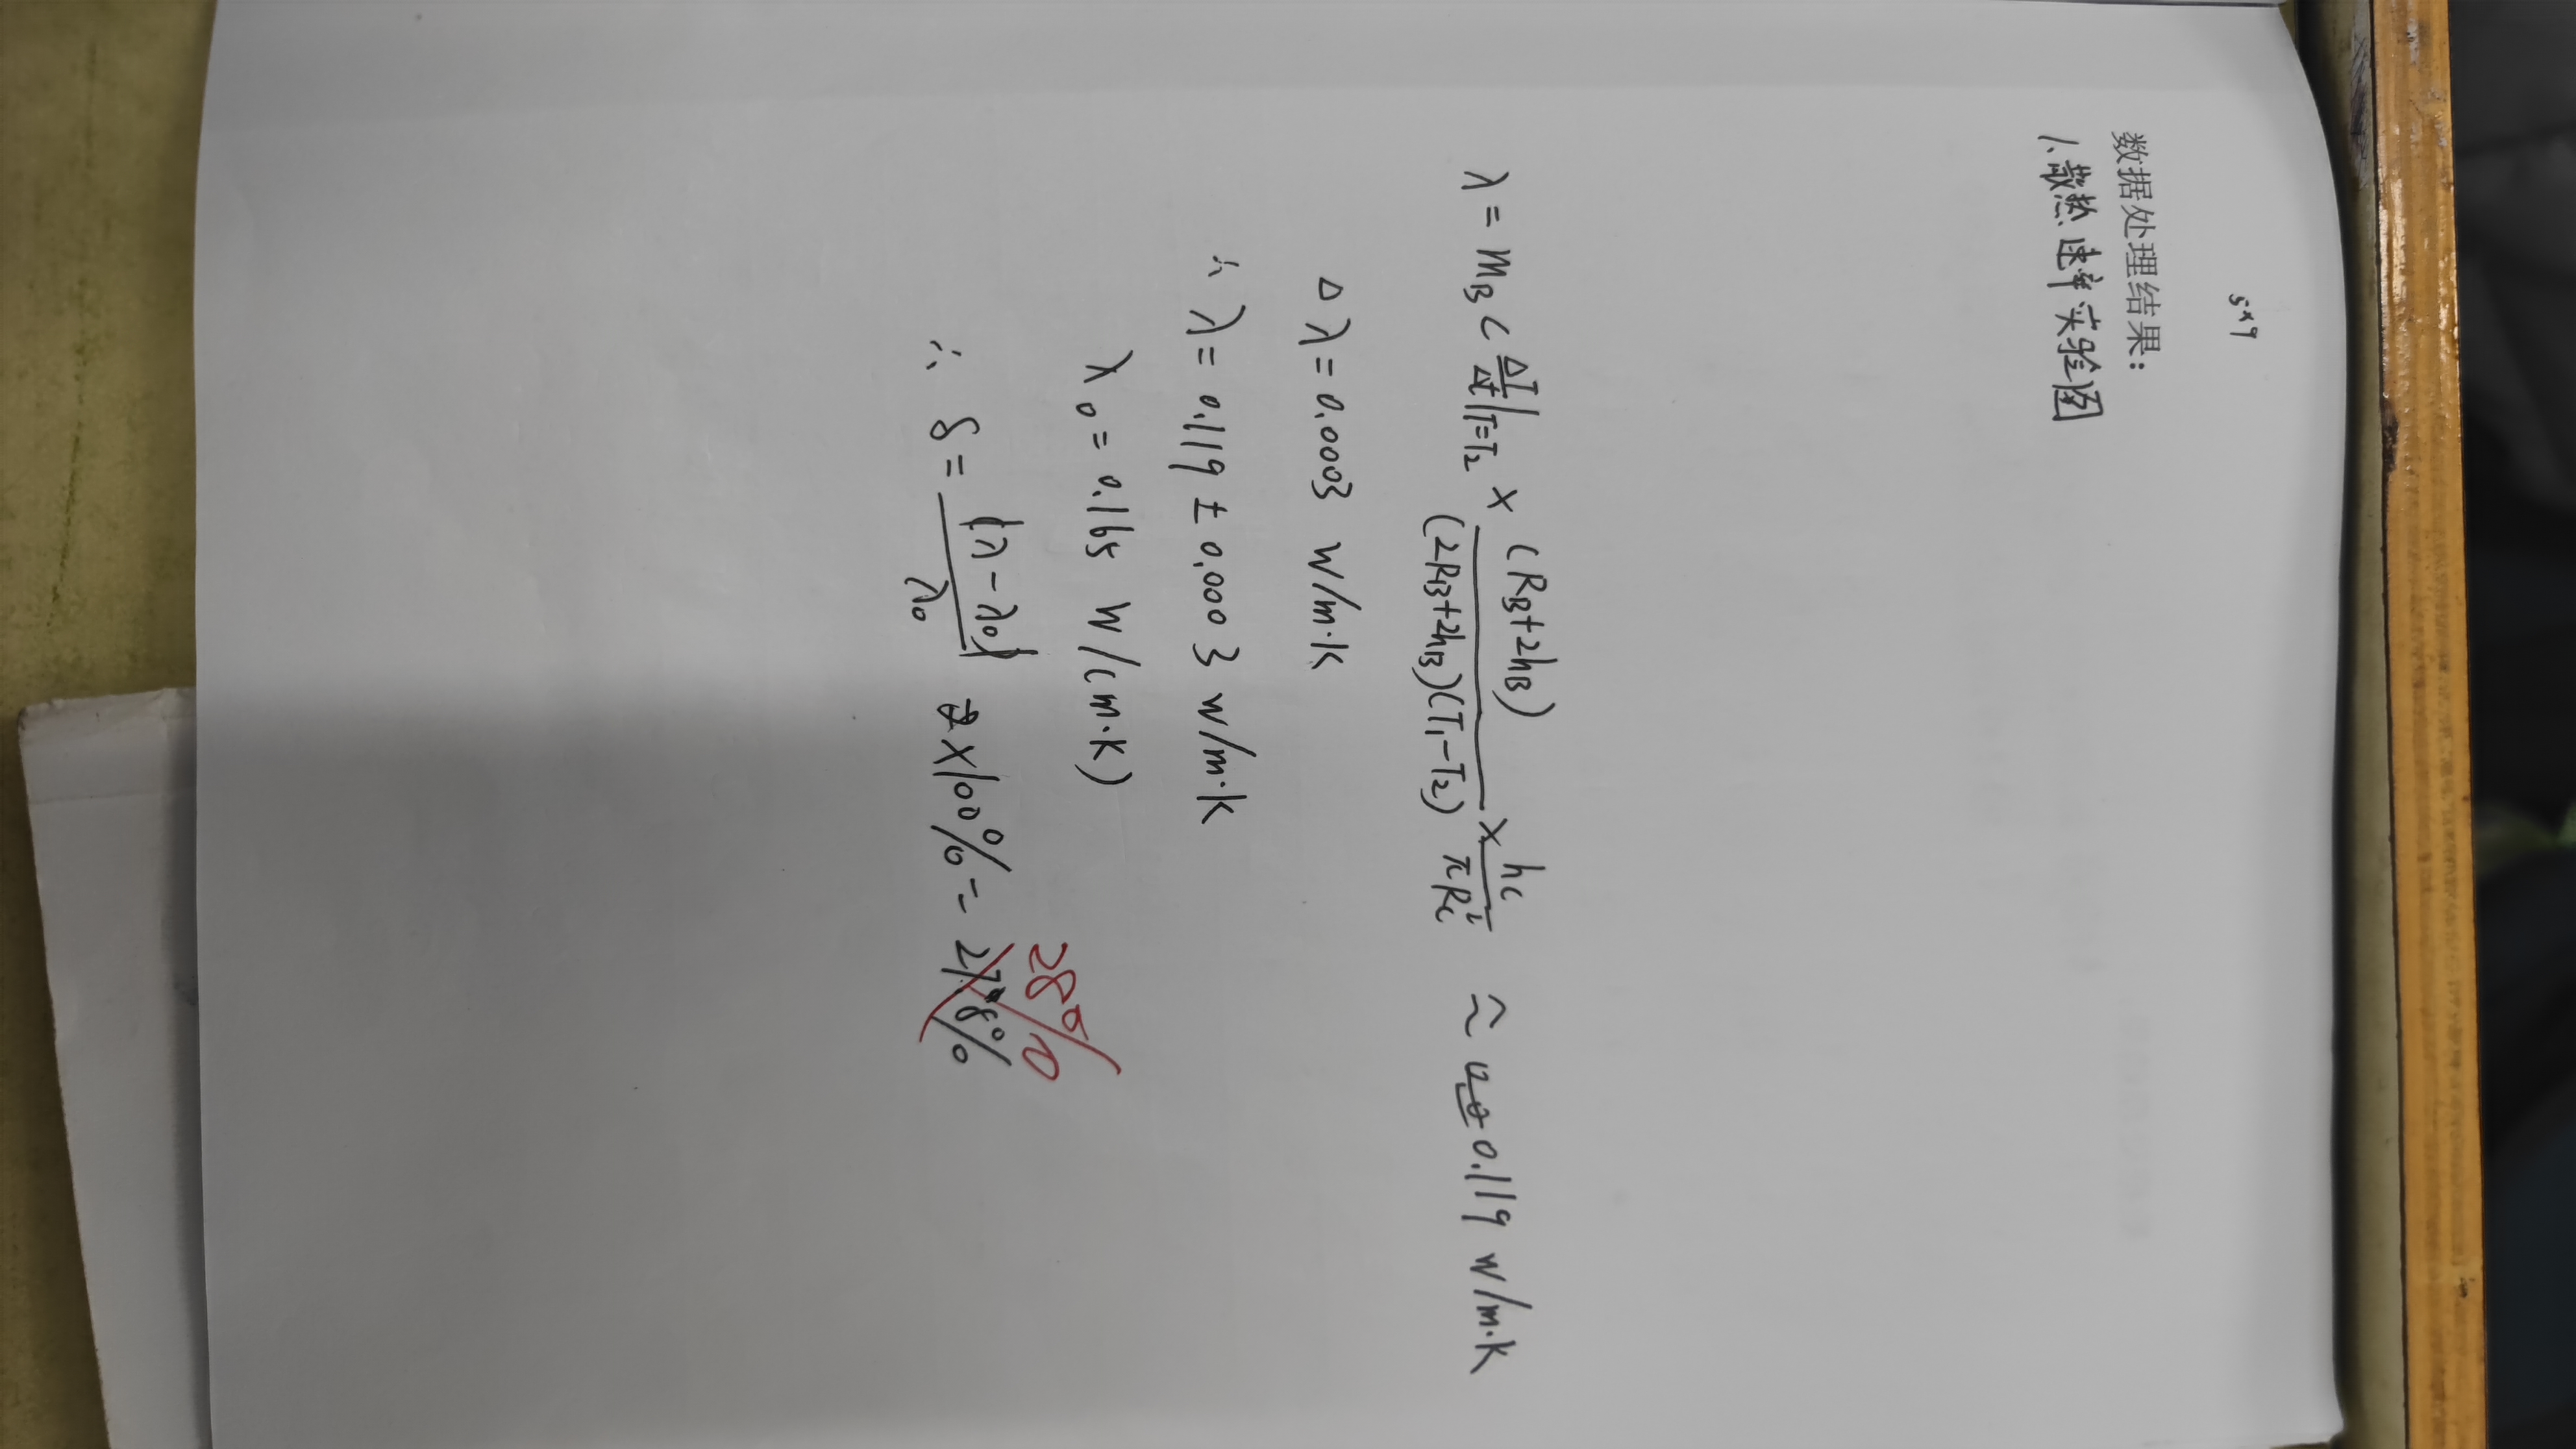 5×9
数据处理结果：
1、散热速率实验图
λ = mB c ΔT/Δt|T=T2 × (RB+2hB)/(2RB+2hB)(T1-T2) × hc/πRc² ≈ 0.119 w/m·k
Δλ = 0.0003 W/m·k
∴ λ = 0.119 ± 0.0003 w/m·k
λ0 = 0.165 W/(m·K)
∴ δ = |λ-λ0|/λ0 ×100% = 27.8% 28%